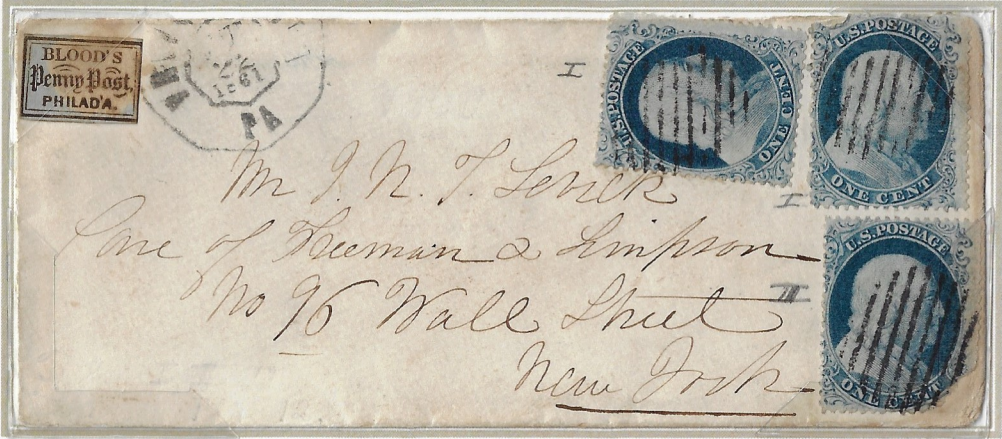 BLOOD'S
Penny Post,
PHILAD'A.
1861
PA
I
U.S. POSTAGE
ONE CENT
I
U.S. POSTAGE
ONE CENT
III
U.S. POSTAGE
ONE CENT
Mr J. N. T. Levick
Care of Freeman & Simpson
No 96 Wall Street
New York